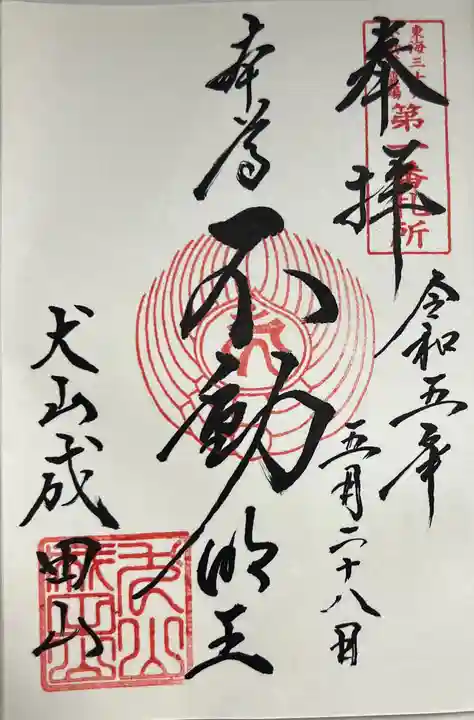 奉拝
第一番札所
令和五年
五月二十八日
本尊
不動明王
犬山成田山